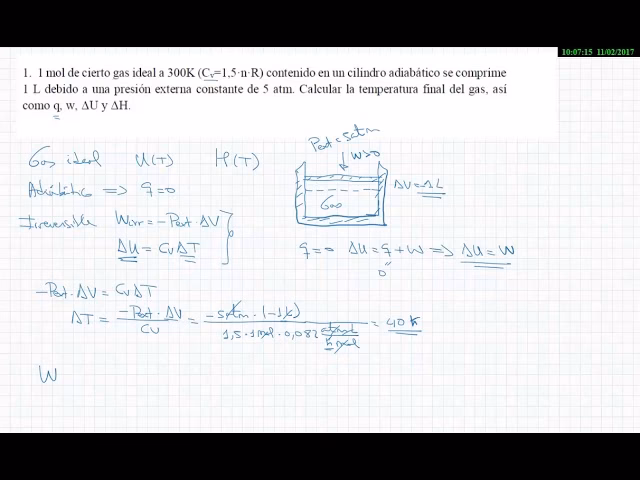 10:07:15 11/02/2017
1. 1 mol de cierto gas ideal a 300K (Cv=1,5·n·R) contenido en un cilindro adiabático se comprime
1 L debido a una presión externa constante de 5 atm. Calcular la temperatura final del gas, así
como q, w, ΔU y ΔH.
Gas ideal U(T) H(T)
Pext=5atm
W>0
Adiabático => q=0
ΔV=-1L
Gas
Irreversible Wirr=-Pext ΔV
ΔU = Cv ΔT
q=0 ΔU = q + W => ΔU = W
0
-Pext·ΔV = CvΔT
ΔT = -Pext·ΔV / Cv = -5atm·(-1L) / 1,5·1mol·0,082 atm·L / K·mol = 40K
W